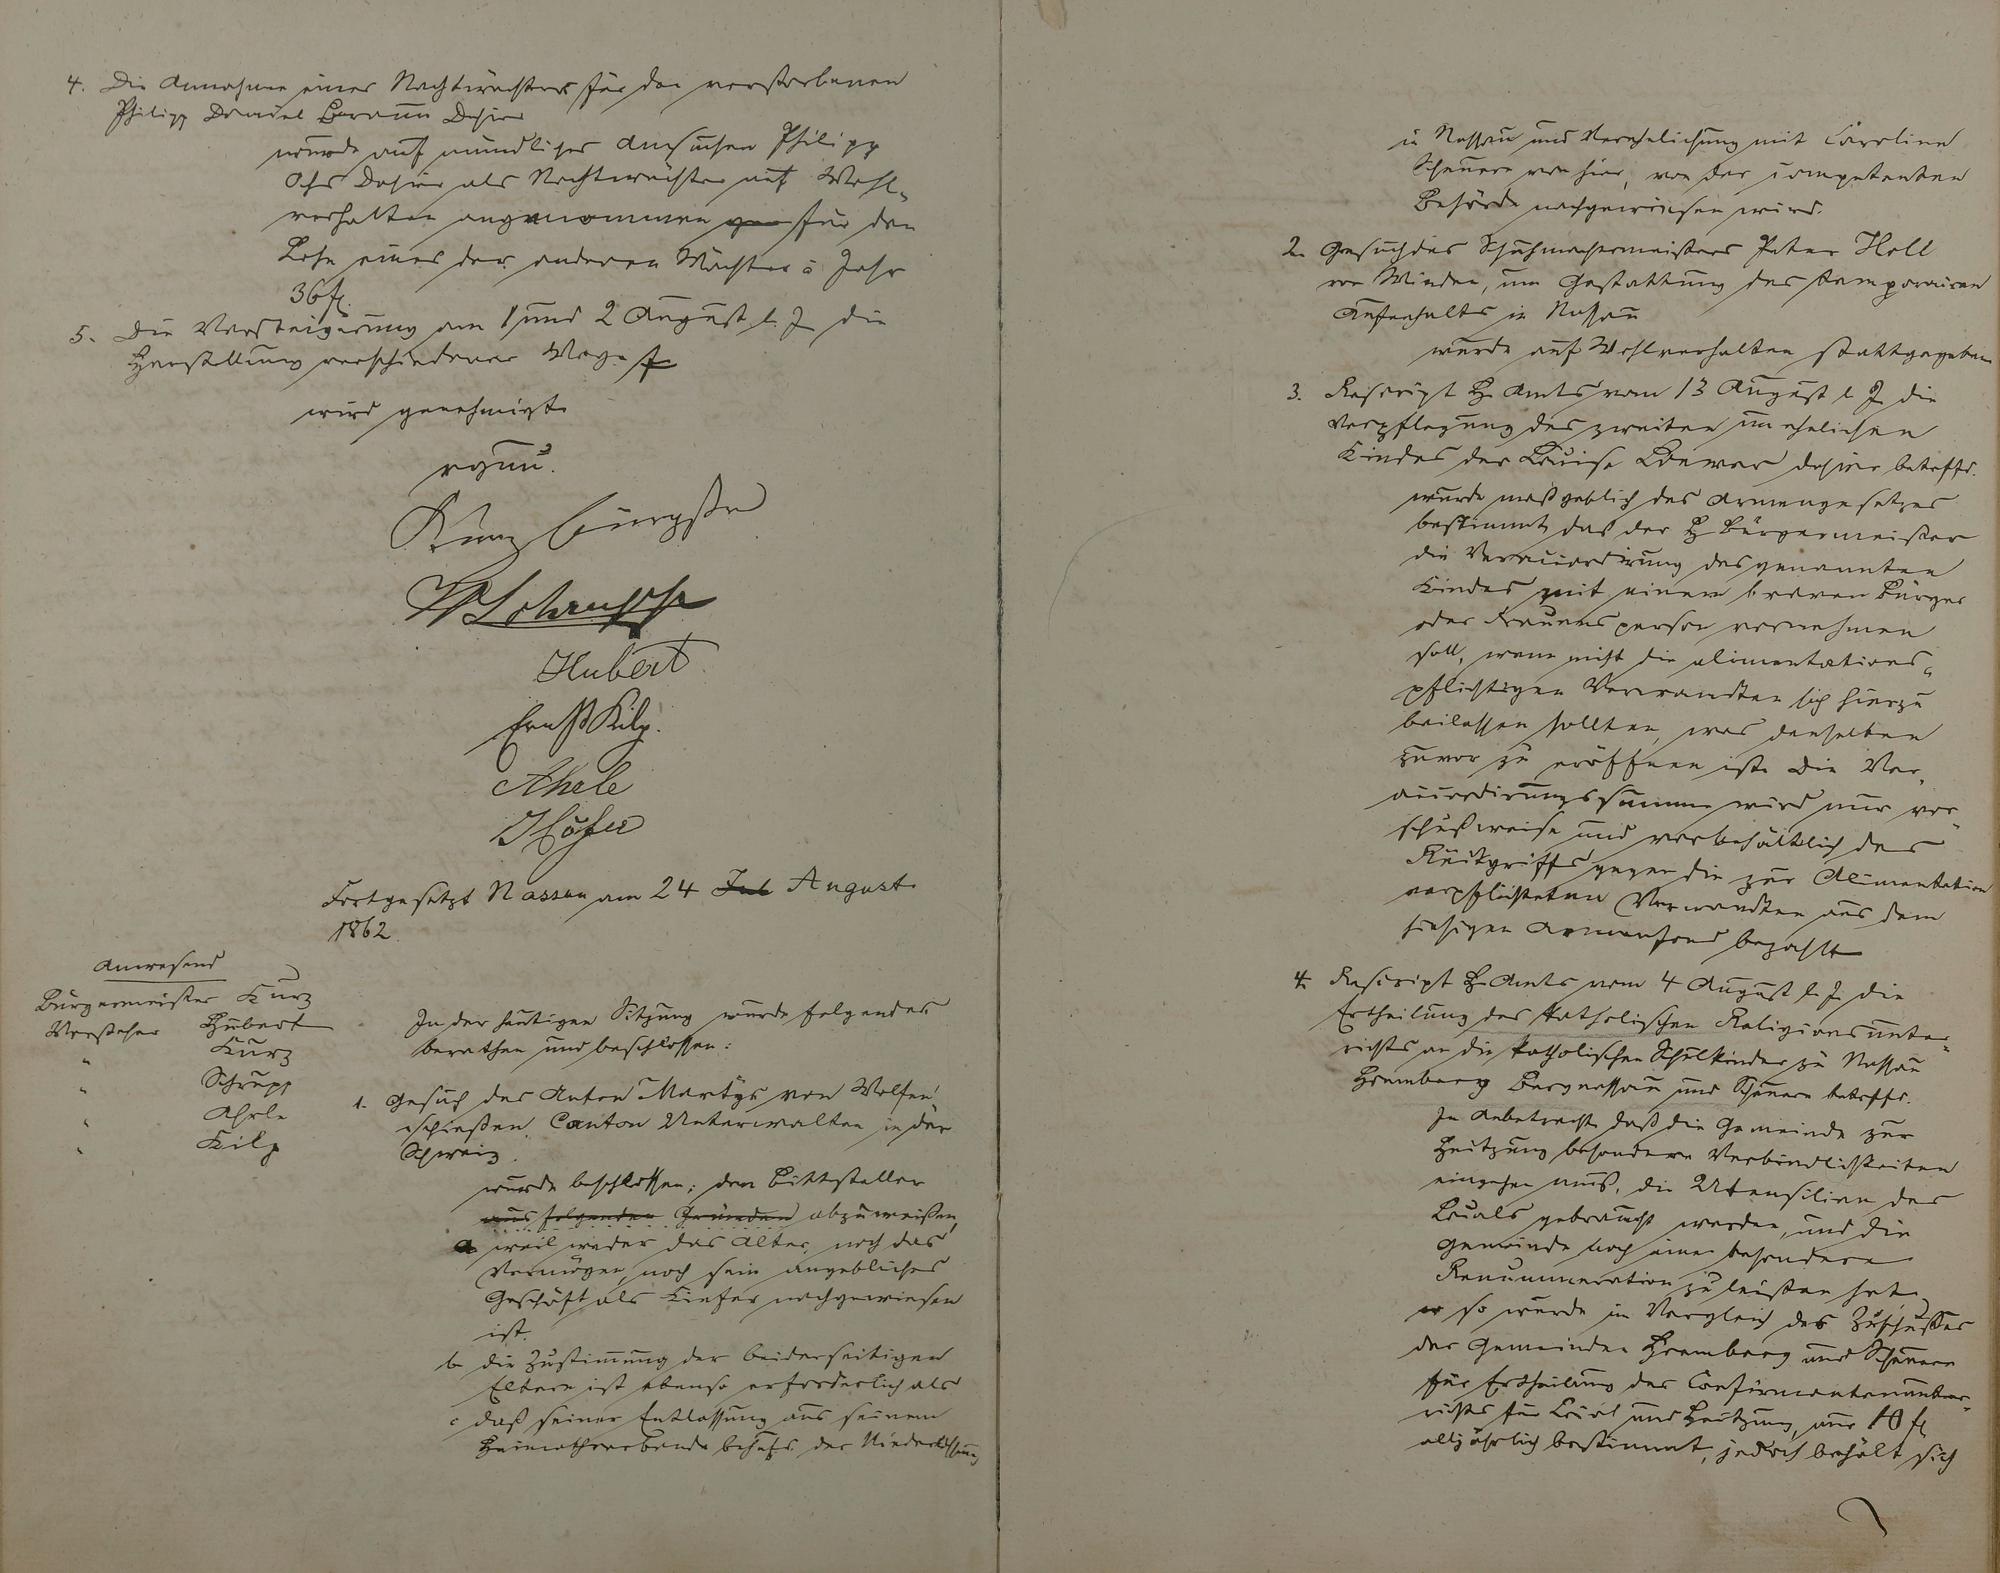 4. Die Annahme eines Nachtwächters für den verstorbenen
Philipp Daniel Braun Dahier
wurde auf mündliches Ansuchen Philipp
Ochs Dahier als Nachtwächter auf Wohl-
verhalten angenommen für den
Lohn eines der anderen Wächter á Jahr
36 fl.
5. Die Versteigerung am 1 und 2 August l. J. die
Herstellung verschiedener Wege
wird genehmigt.
Kurz Bürgstr
Hubert
Ernst Kilp.
Ahrle
Höfer
Fortgesetzt Nassau am 24 Jul August
1862.
Anwesend
Bürgermeister Kurz
Vorsteher Hubert
" Kurz
" Schrupp
" Ahrle
" Kilp
In der heutigen Sitzung wurde folgendes
berathen und beschlossen:
1. Gesuch des Anton Martys von Wolfen-
schießen, Canton Unterwalten in der
Schweiz.
wurde beschlossen: den Bittsteller
aus folgenden Gründen abzuweißen,
a weil weder das Alter, noch das
Vermögen, noch sein angebliches
Geschäft als Kiefer nachgewiesen
ist.
b die Zustimmung der beiderseitigen
Eltern ist ebenso erforderlich als
c daß seiner Entlassung aus seinem
Heimathverbande behufs der Niederlassung
in Nassau und Verehelichung mit Caroline
Scheuern von hier, von der competenten
Behörde nachgewiesen wird.
2. Gesuch des Schuhmachermeisters Peter Holl
von Winden, um Gestattung des temporairen
Aufenhalts in Nassau
wurde auf Wohlverhalten stattgegeben
3. Rescript H. Amts vom 13 August l. J. die
Verpflegung des zweiten unehelichen
Kindes der Luise dahier betreffd.
wurde maßgeblich des Armengesetzes
bestimmt, daß der H. Bürgermeister
die Veraccordirung des genannten
Kindes mit einem braven Bürger
oder Frauensperson vornehmen
soll, wenn nicht die alimentations-
pflichtigen Verwandten sich hierzu
beilassen sollten, was denselben
zuvor zu eröffnen ist. Die Ver-
accordirungssumme wird nur vor-
schußweise und vorbehältlich des
Rückgriffs gegen die zur Alimentation
verpflichteten Verwandten aus dem
hiesigen Armenfond bezahlt
4. Rescript H. Amts vom 4 August l. J. die
Ertheilung des katholischen Religionsunter-
richts an die katholischen Schulkinder zu Nassau
Hömberg Bergnassau und Scheuern betreffd.
In Anbetracht, daß die Gemeinde zur
Heitzung besondere Verbindlichkeiten
eingehen muß, die Utensilien des
Locals gebraucht werden, und die
Gemeinde noch eine besondere
Renumeration zu leisten hat
so wurde in Vergleich des Zuschußes
der Gemeinden Hömberg und Scheuern
für Ertheilung des Confirmantenunter-
richts für Local und Heitzung, nur 10 fl
alljährlich bestimmt, jedoch behält sich